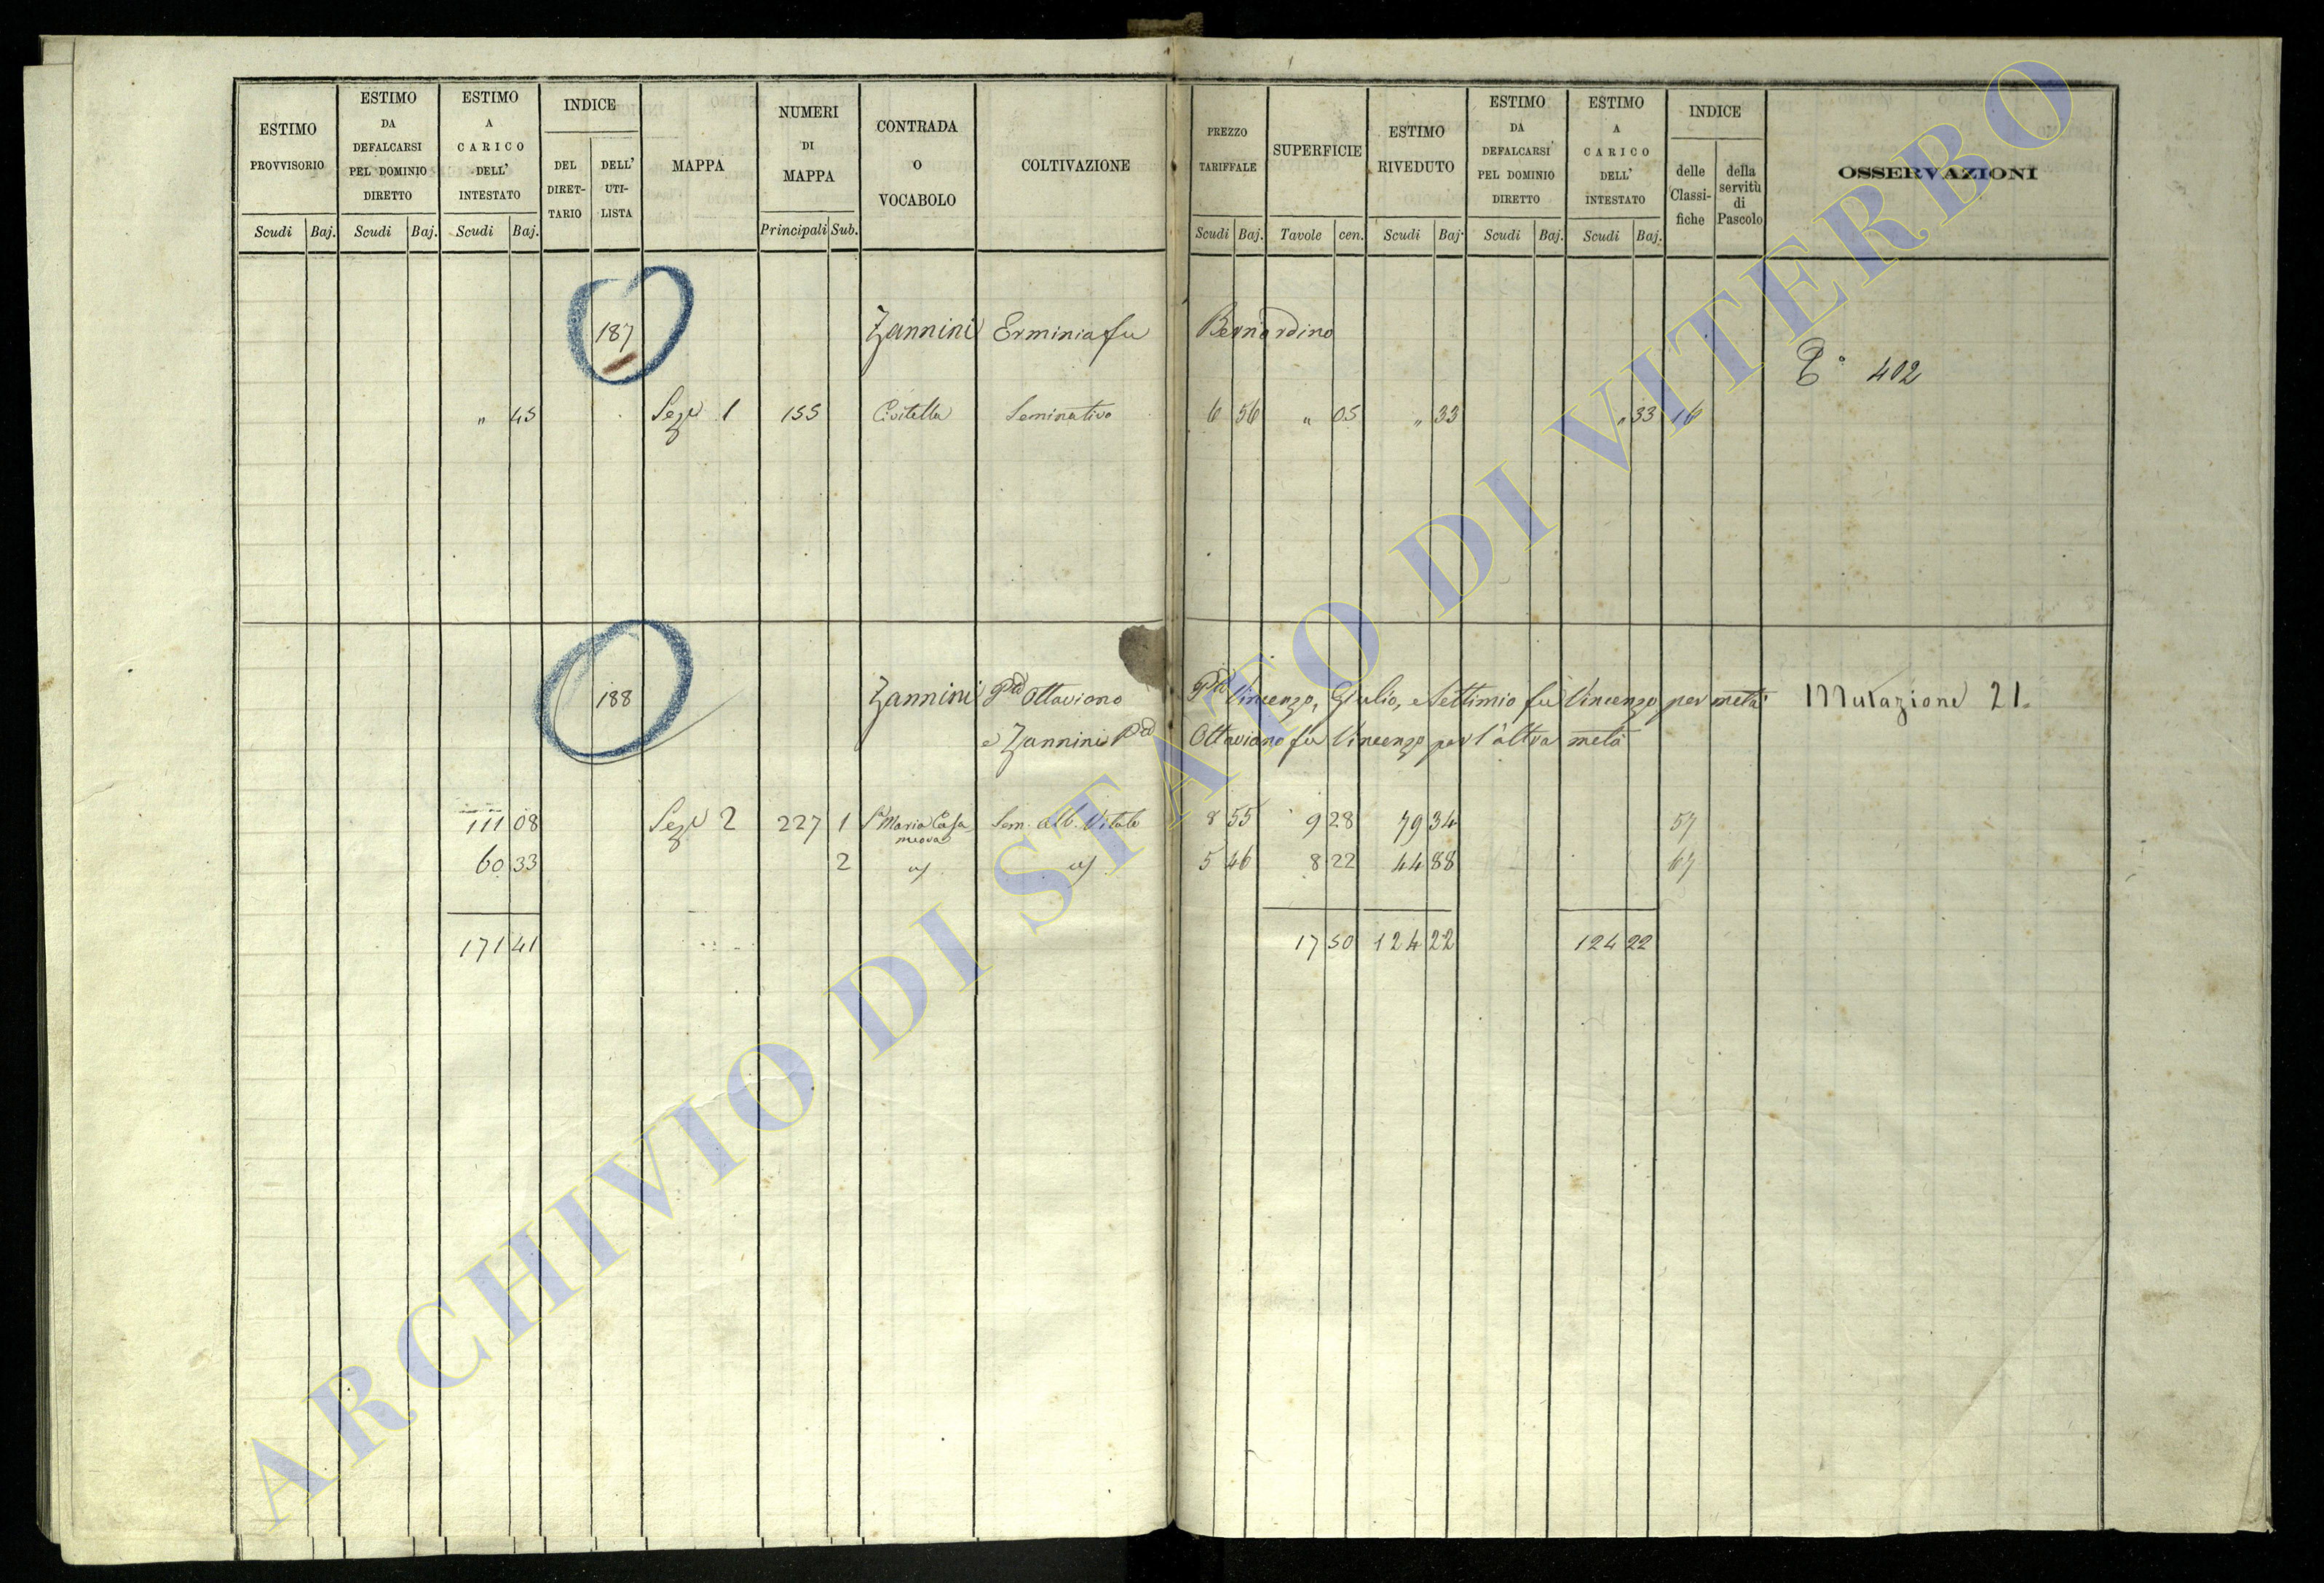 ESTIMO PROVVISORIO
ESTIMO DA DEFALCARSI PEL DOMINIO DIRETTO
ESTIMO A CARICO DELL' INTESTATO
INDICE
DEL DIRET-TARIO
DELL' UTI-LISTA
MAPPA
NUMERI DI MAPPA
CONTRADA O VOCABOLO
COLTIVAZIONE
PREZZO TARIFFALE
SUPERFICIE
ESTIMO RIVEDUTO
ESTIMO DA DEFALCARSI PEL DOMINIO DIRETTO
ESTIMO A CARICO DELL' INTESTATO
INDICE
delle Classi-fiche
della servitù di Pascolo
OSSERVAZIONI
Scudi Baj. Scudi Baj. Scudi Baj. Principali Sub. Scudi Baj. Tavole cen. Scudi Baj. Scudi Baj. Scudi Baj.
187 Zannini Erminia fu Bernardino
402
" 45 Sezne 1 155 Civitella Seminativo 6 56 " 05 " 33 " 33 16
188 Zannini Pta Ottaviano Pta Vincenzo, Giulio, e Settimio fu Vincenzo per metà Mutazione 21.
e Zannini Pta Ottaviano fu Vincenzo per l'altra metà
111 08 Sezne 2 227 1 Sa Maria Casa nuova Sem. alb. Vitato 8 55 9 28 79 34 57
60 33 2 5 46 8 22 44 88 67
171 41 17 50 124 22 124 22
ARCHIVIO DI STATO DI VITERBO